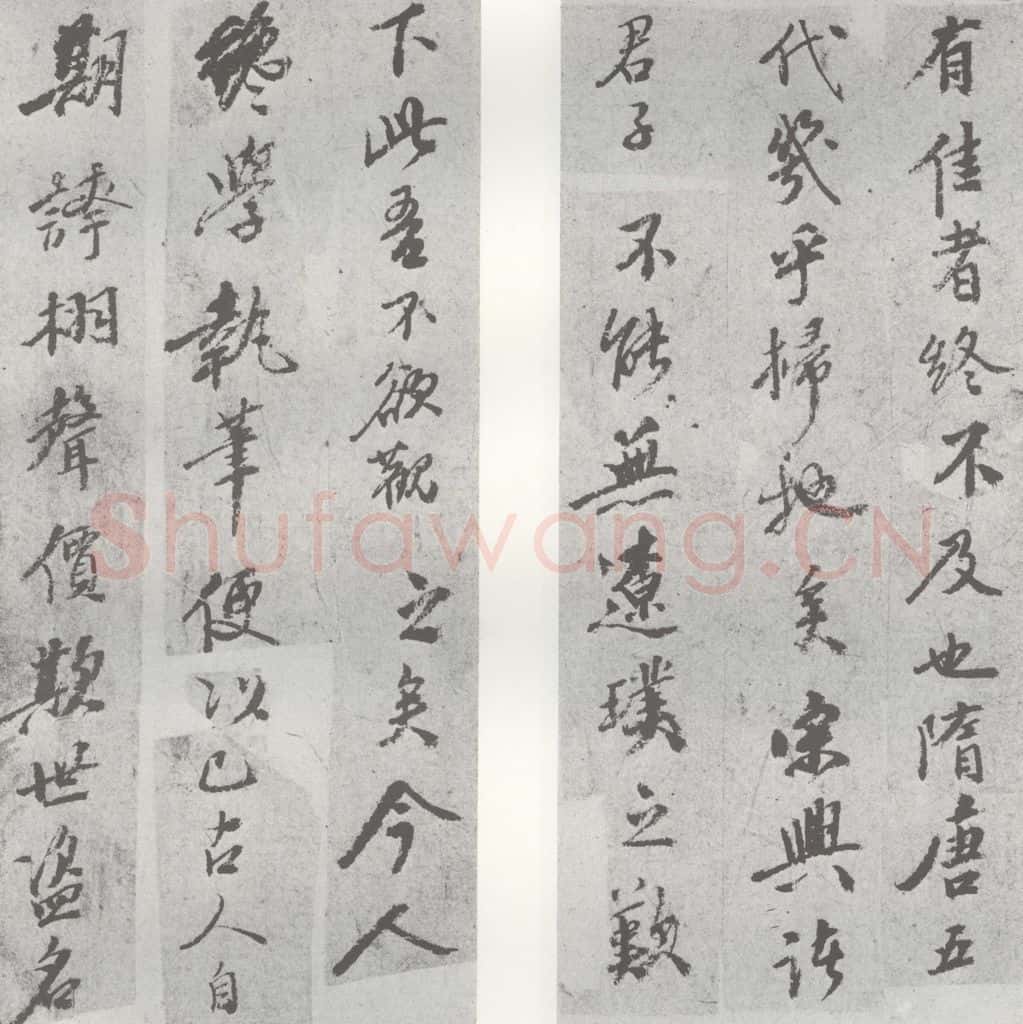 有佳者終不及也隋唐五
代幾乎掃地矣宋興諸
君子不能無遼璞之歎
下此吾不欲觀之矣今人
纔學執筆便以已古人自
期誇栩聲價欺世盜名
Shufawang.CN